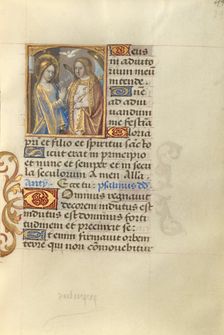 Deus
in adiutor
ium meum
intende
ne
ad adiuu
andum
me festina
Gloria
pri et filio et spiritui sancto
Sicut erat in principio
et nunc et semper et in secu
la seculorum Amen Alla
psalmus dd
Dominus regnauit
decorem indutus est
indutus est dominus forti
tudinem et precinxit se
firmauit orbem
terre qui non commouebitur